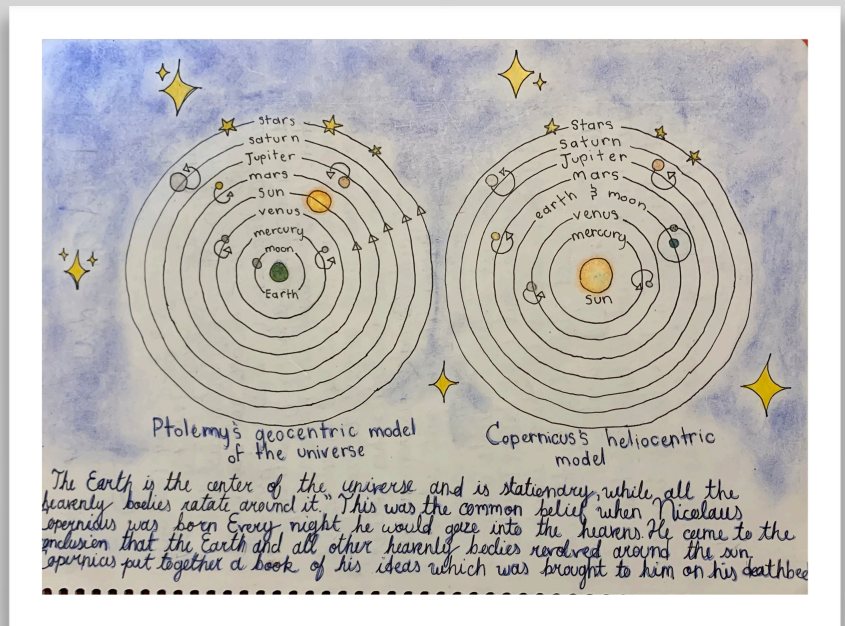 stars
saturn
Jupiter
mars
Sun
venus
mercury
moon
Earth
Ptolemy's geocentric model
of the universe
Stars
Saturn
Jupiter
Mars
earth & moon
venus
mercury
Sun
Copernicus's heliocentric
model
The Earth is the center of the universe and is stationary, while, all the
heavenly bodies ratate around it." This was the common belief when Nicolaus
opernicus was born Every night he would gaze into the heavens. He came to the
onclusion that the Earth and all other heavenly bodies revolved around the sun
opernicas put together a book of his ideas which was brought to him on his deathbed